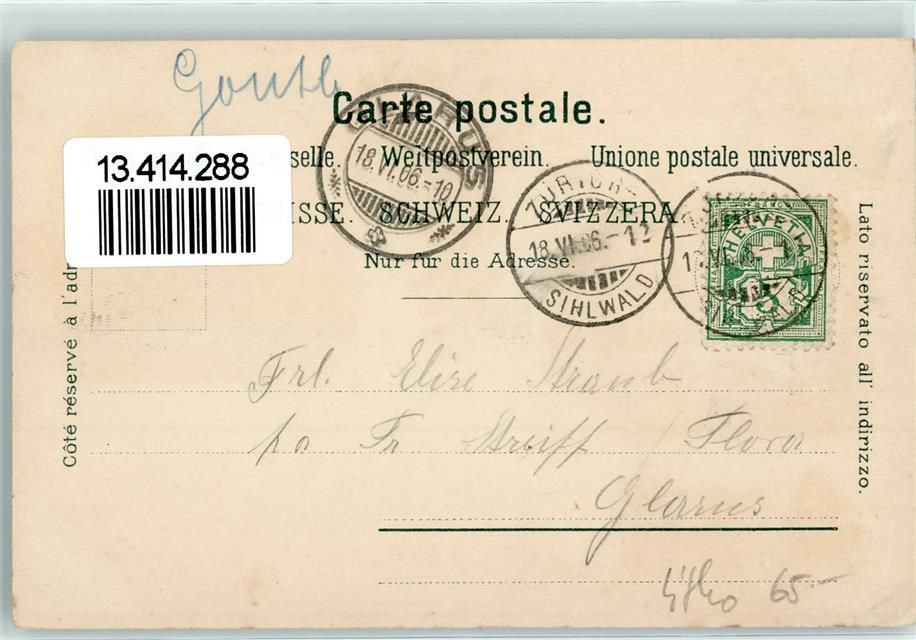 Carte postale.
13.414.288
selle. Weltpostverein. Unione postale universale.
ISSE. SCHWEIZ. SVIZZERA.
Nur für die Adresse.
GLARUS
18.VI.06.-10
ZÜRICH-
18.VI.06.-12
SIHLWALD
HELVETIA
Côté réservé à l'adr
Lato riservato all' indirizzo.
Frl. Elise Straub
Streiff Flora
Glarus
Litho 65.-